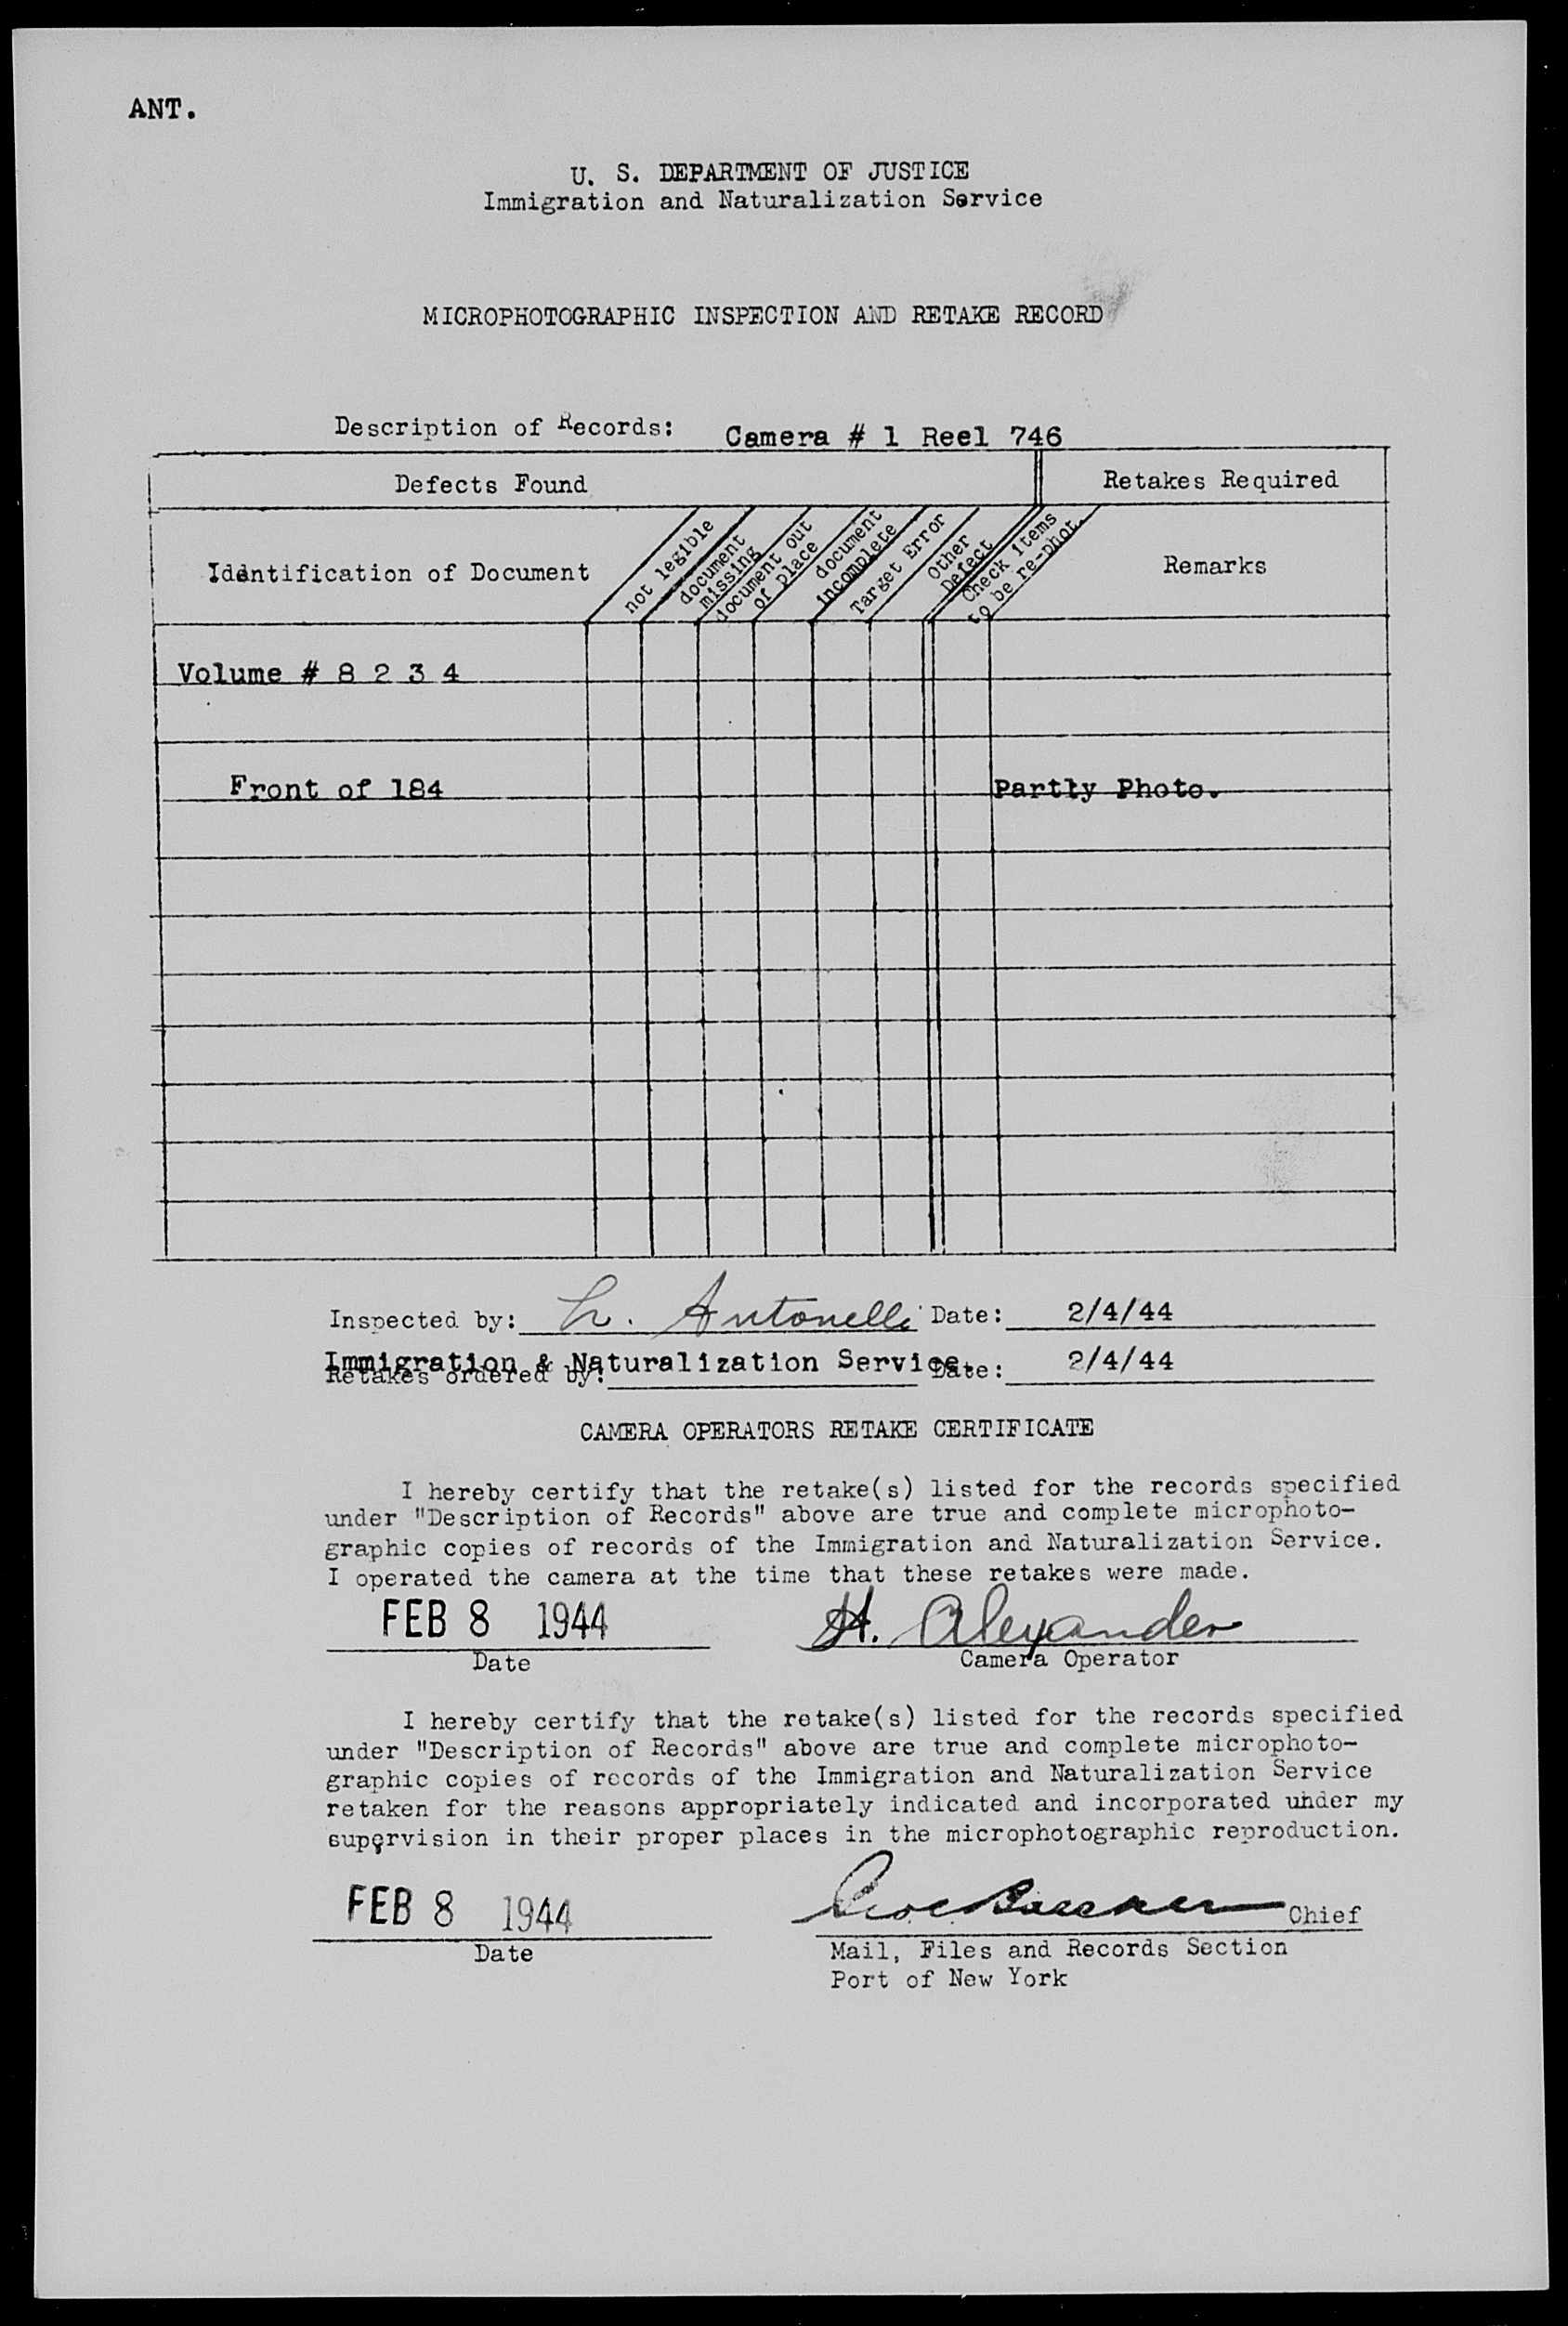 ANT.
U. S. DEPARTMENT OF JUSTICE
Immigration and Naturalization Service
MICROPHOTOGRAPHIC INSPECTION AND RETAKE RECORD
Description of Records: Camera # 1 Reel 746
Defects Found
Retakes Required
Identification of Document
not legible
document
missing
document out
of place
document
incomplete
Target Error
Other
Defect
Check items
to be re-phot.
Remarks
Volume # 8 2 3 4
Front of 184
Partly Photo.
Inspected by: L. Antonelli Date: 2/4/44
Immigration & Naturalization Service.
Retakes ordered by: Date: 2/4/44
CAMERA OPERATORS RETAKE CERTIFICATE
I hereby certify that the retake(s) listed for the records specified
under "Description of Records" above are true and complete microphoto-
graphic copies of records of the Immigration and Naturalization Service.
I operated the camera at the time that these retakes were made.
FEB 8 1944 H. Alexander
Date Camera Operator
I hereby certify that the retake(s) listed for the records specified
under "Description of Records" above are true and complete microphoto-
graphic copies of records of the Immigration and Naturalization Service
retaken for the reasons appropriately indicated and incorporated under my
supervision in their proper places in the microphotographic reproduction.
FEB 8 1944 Chief
Date Mail, Files and Records Section
Port of New York